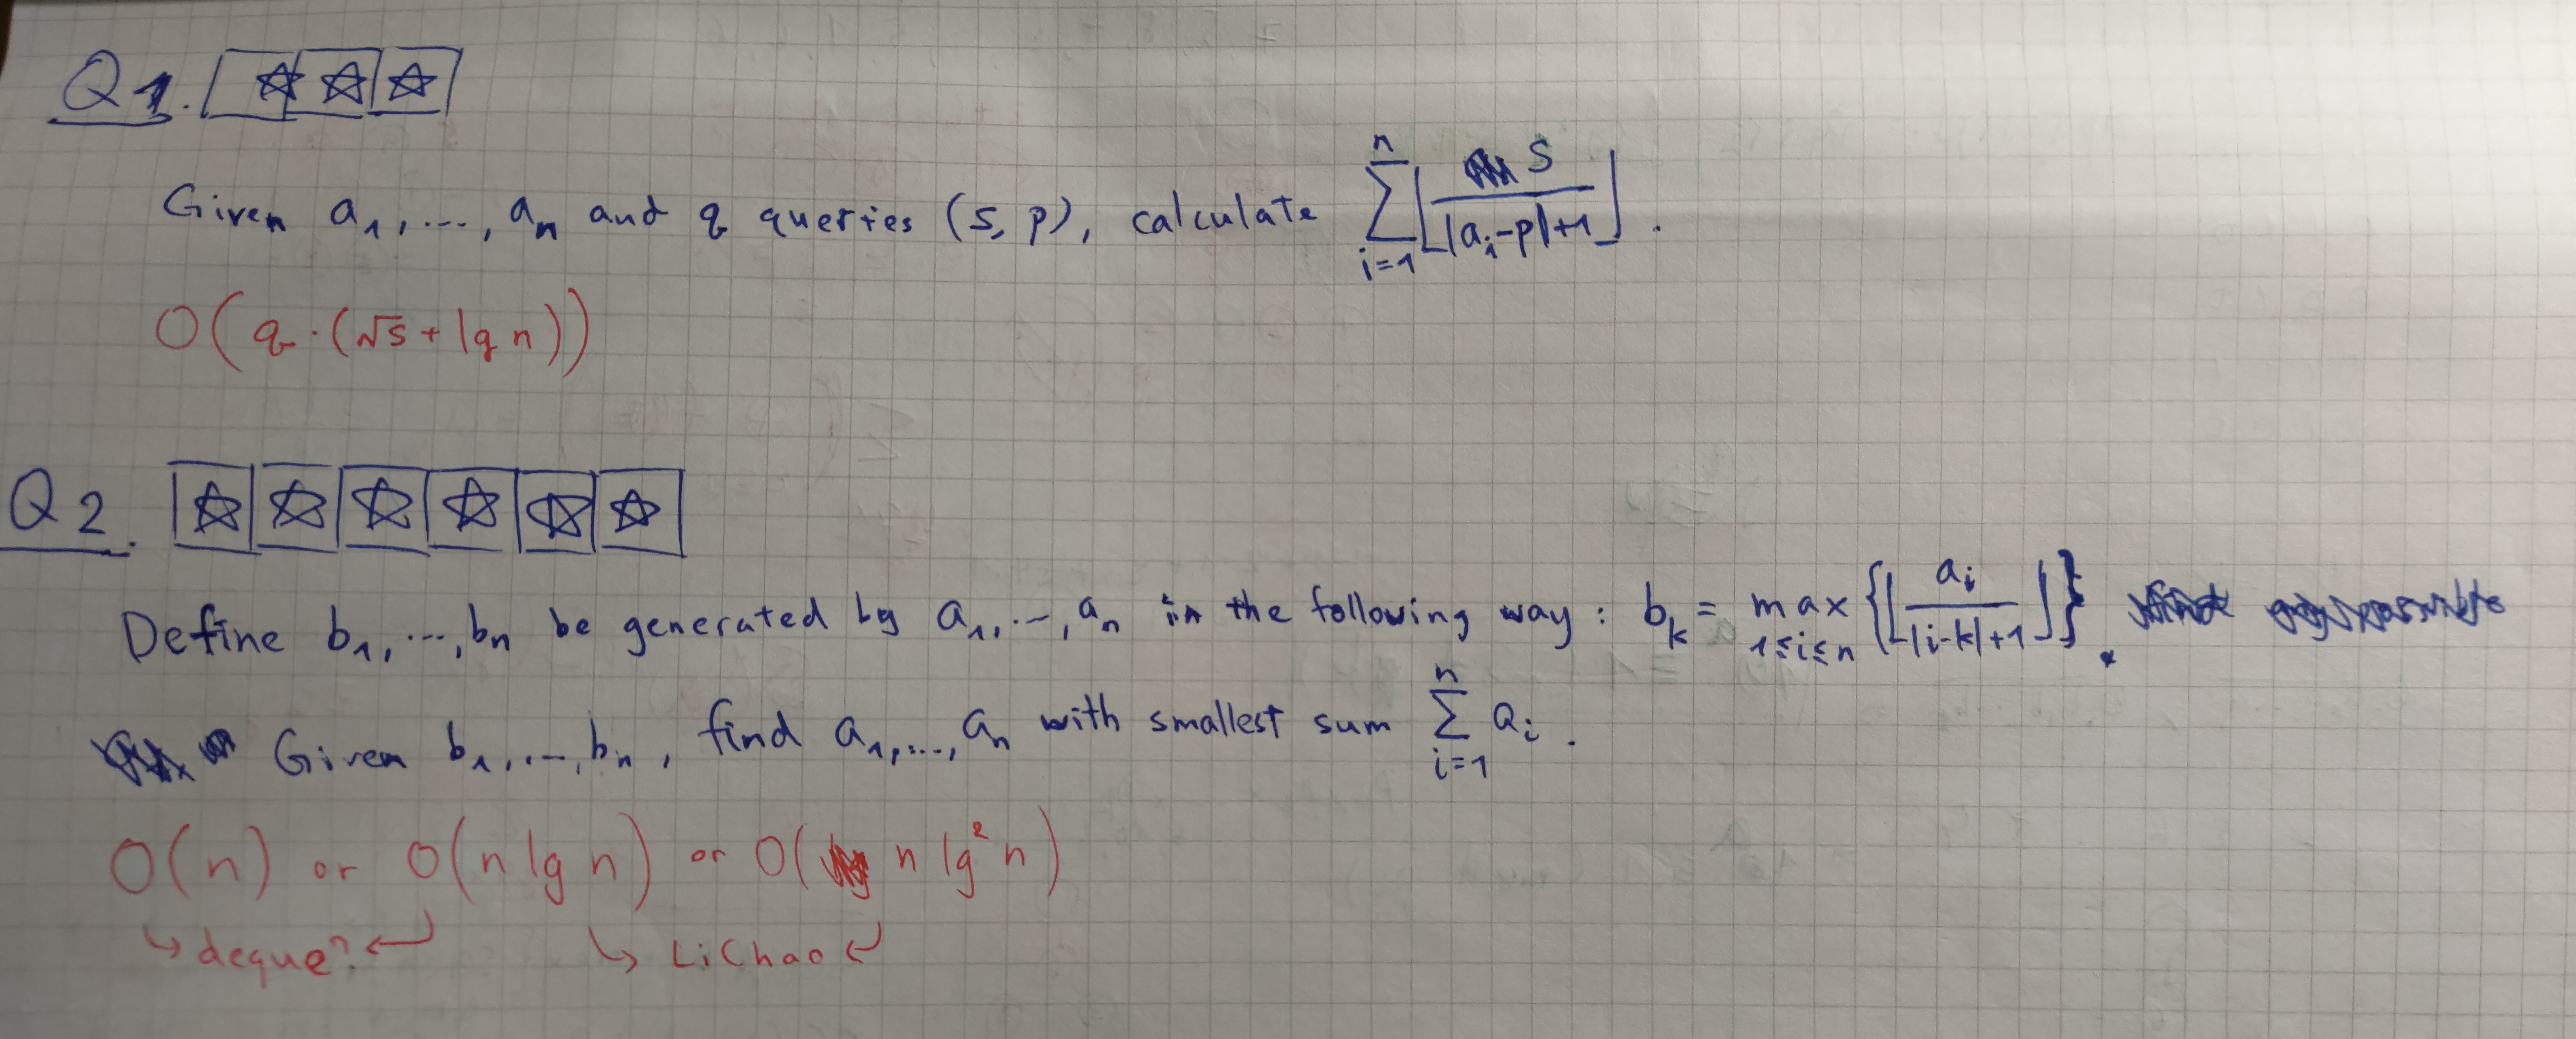 Q1. ☆☆☆
Given a₁, ..., aₙ and q queries (s, p), calculate ∑_{i=1}^{n} ⌊s / (|aᵢ-p|+1)⌋.
O(q·(√s + lg n))
Q2. ☆☆☆☆☆☆
Define b₁, ..., bₙ be generated by a₁, ..., aₙ in the following way: bₖ = max_{1≤i≤n} {⌊aᵢ / (|i-k|+1)⌋}.
Given b₁, ..., bₙ, find a₁, ..., aₙ with smallest sum ∑_{i=1}^{n} aᵢ.
O(n) or O(n lg n) or O(n lg² n)
↳ deque? ↲ ↳ LiChao ↲